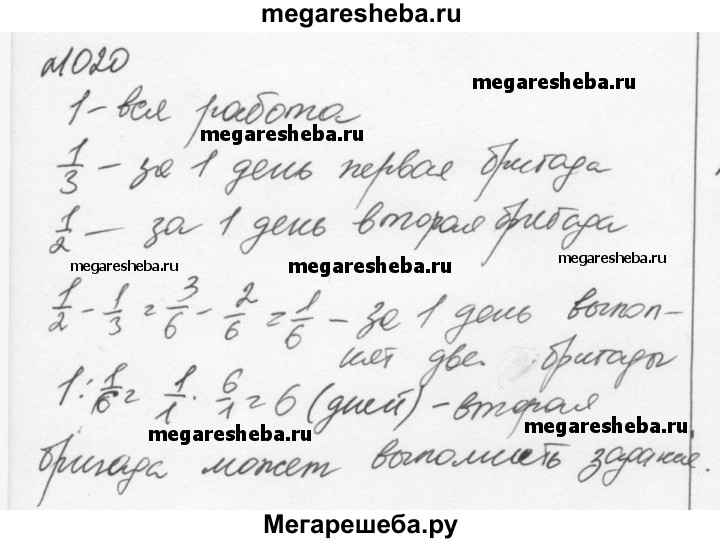 megaresheba.ru
№1020
1 – вся работа
megaresheba.ru
megaresheba.ru
1/3 – за 1 день первая бригада
1/2 – за 1 день вторая бригада
megaresheba.ru
megaresheba.ru
megaresheba.ru
1/2 - 1/3 = 3/6 - 2/6 = 1/6 – за 1 день выпол-
нят две бригады
1 : 1/6 = 1/1 · 6/1 = 6 (дней) – вторая
megaresheba.ru
megaresheba.ru
бригада может выполнить задание.
Мегарешеба.ру